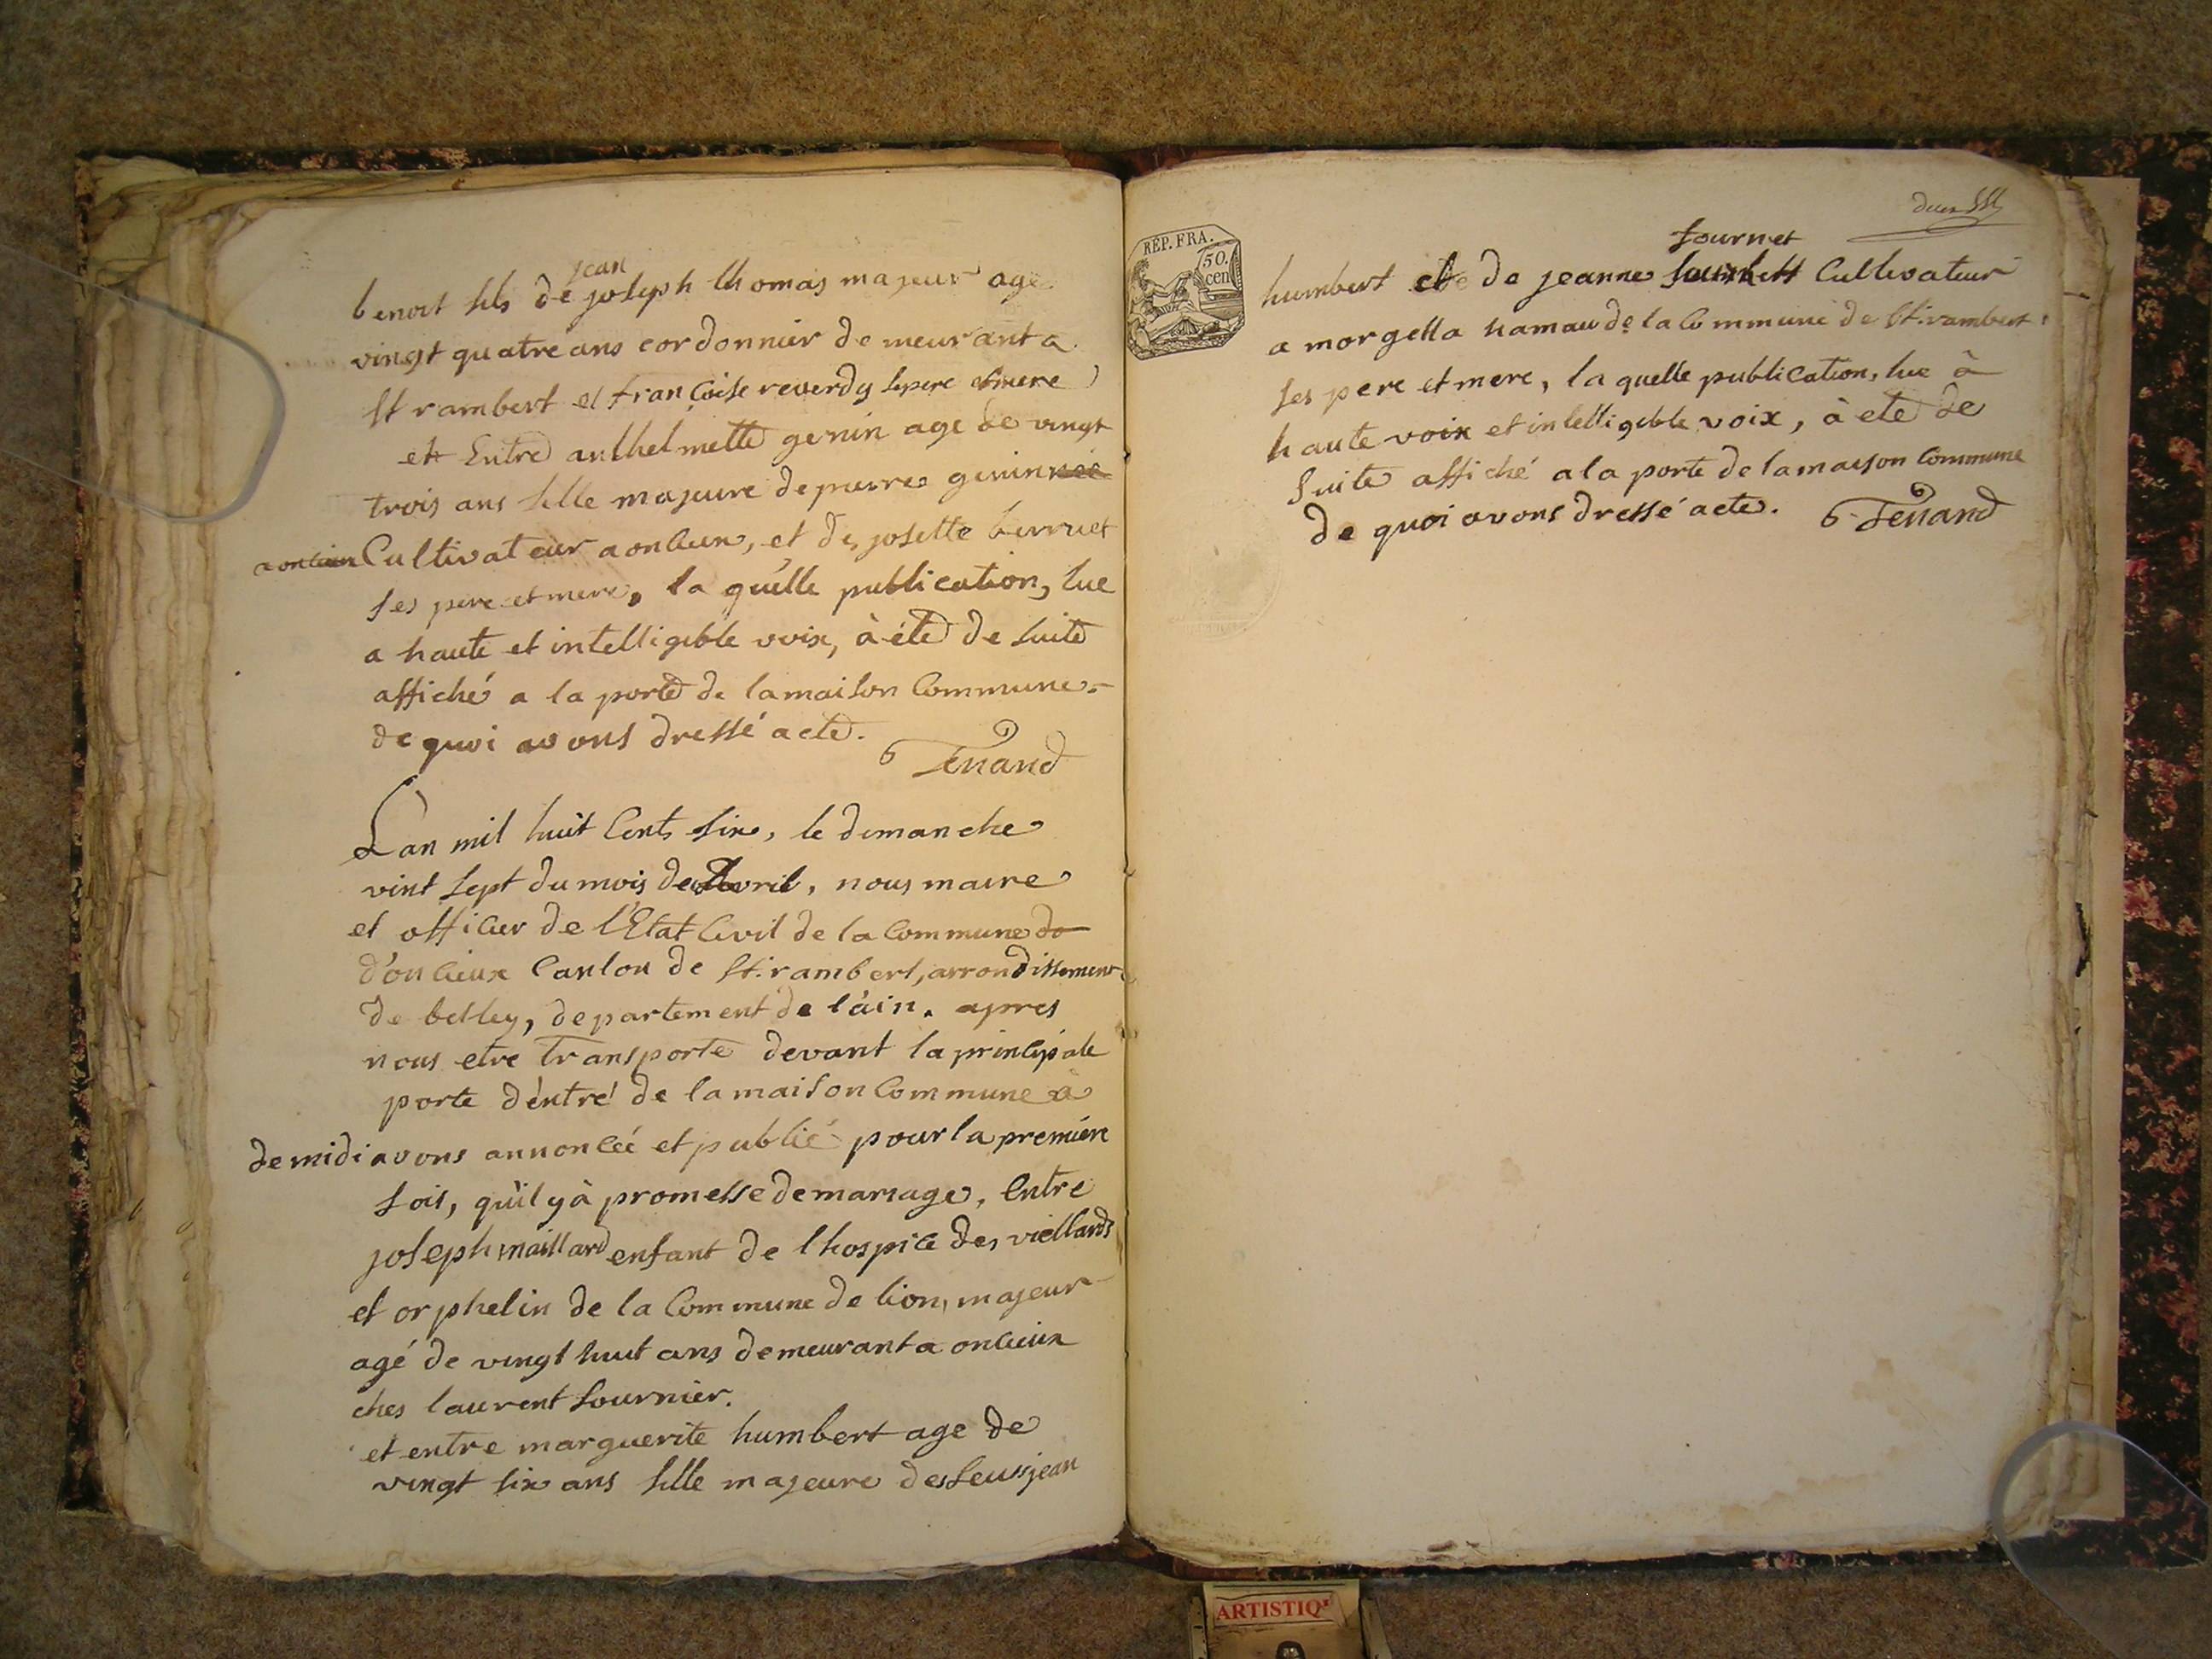 jean
benoit fils de joseph thomas majeur age
vingt quatre ans cordonnier demeurant a
St rambert et françoise reverdy ses pere et mere
et Entre anthelmette genin age de vingt
trois ans fille majeure de pierre genin née
a oncieu Cultivateur a oncieux, et de josette berruet
ses pere et mere, la quelle publication, lue
a haute et intelligible voix, à été de suite
affiché a la porte de la maison Commune
de quoi avons dressé acte.
Tenand
L'an mil huit Cents six, le dimanche
vint sept du mois de Avril, nous maire
et officier de l'Etat Civil de la Commune do
d'oncieux Canton de St. rambert, arrondissement
de belley, departement de l'ain. apres
nous etre transporte devant la principale
porte d'entré de la maison Commune à
de midi avons annoncé et publié pour la premiere
fois, qu'il y à promesse de mariage, Entre
joseph maillard enfant de l hospice des viellards
et orphelin de la Commune de lion, majeur
agé de vingt huit ans demeurant a oncieux
ches laurent fournier.
et entre marguerite humbert age de
vingt six ans fille majeure des feus jean
RÉP. FRA.
50.
cen
fournet
humbert et de jeanne Cultivateur
a morgella hamau de la Commune de St. rambert
ses pere et mere, la quelle publication, lue à
haute voix et intelligible voix, à ete de
suite affiché a la porte de la maison Commune
de quoi avons dressé acte. Tenand
ARTISTIQ